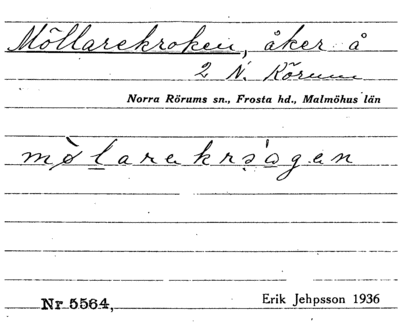 Möllarekroken, åker å
2 N. Rörum
Norra Rörums sn., Frosta hd., Malmöhus län
Nr 5564,
Erik Jehpsson 1936